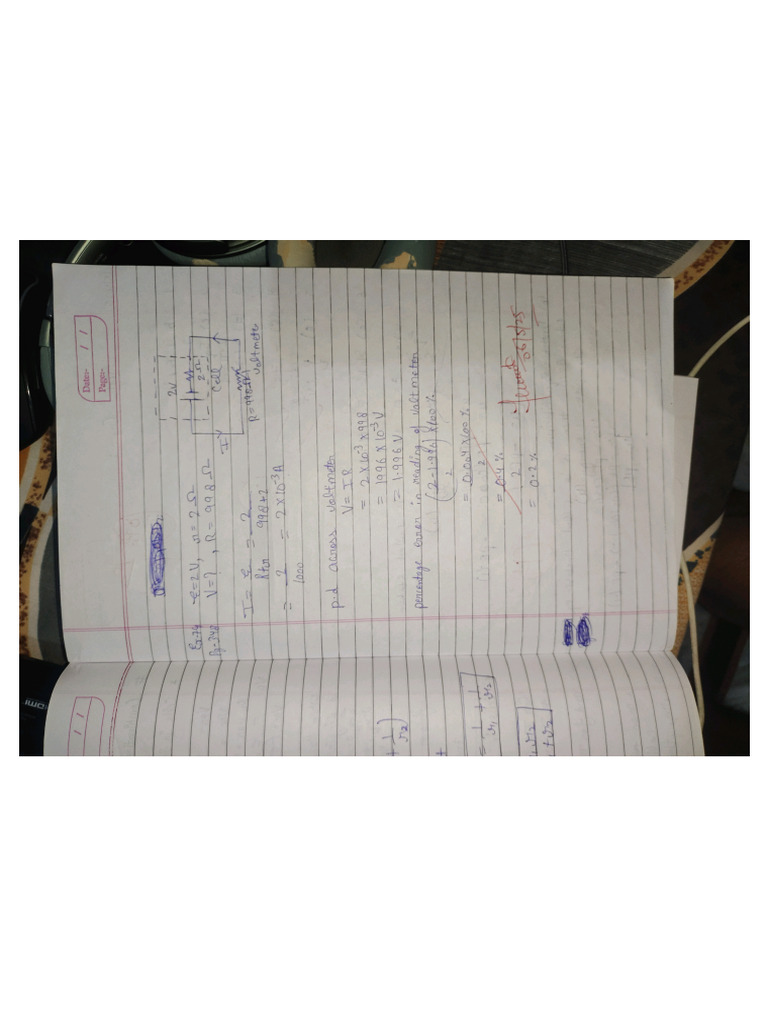 Date:-
Page:-
Ex 74 ε = 2V, r = 2Ω
Pg-242 V = ?, R = 998Ω
2V
2Ω
Cell
I
R = 998Ω
Voltmeter
I = ε = 2
R+r 998+2
= 2 = 2×10⁻³A
1000
p.d across voltmeter
V = IR
= 2×10⁻³×998
= 1996×10⁻³V
= 1.996V
percentage error in reading of voltmeter
(2-1.996)×100%
2
= 0.004×100%
2
= 0.4%
2
= 0.2%
06/5/25
+ 1/r₂)
= 1/r₁ + 1/r₂
r₁r₂
+r₂